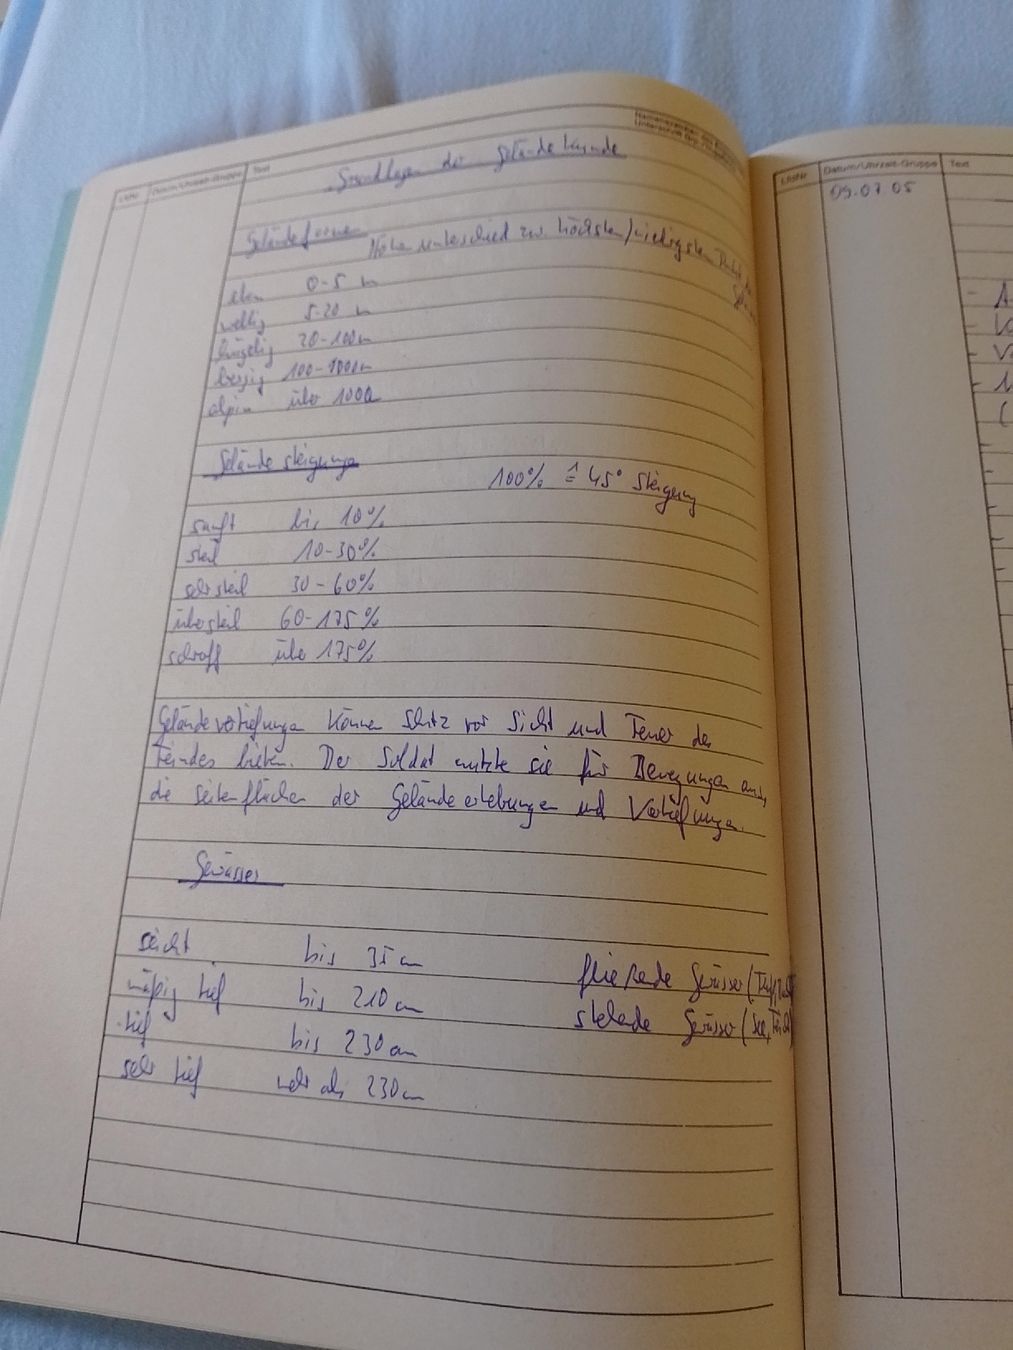 Lfd.Nr.
Datum/Uhrzeit-Gruppe
Text
Grundlagen der Geländekunde
Geländeformen
Höhenunterschied zw. höchsten/niedrigsten Punkt
eben 0-5 m
wellig 5-20 m
hügelig 20-100m
bergig 100-1000m
alpin über 1000
Geländesteigungen
100% ≙ 45° Steigung
sanft bis 10%
steil 10-30%
sehr steil 30-60%
übersteil 60-175%
schroff über 175%
Geländevertiefungen können Schutz vor Sicht und Feuer des
Feindes bieten. Der Soldat nutzte sie für Bewegungen
die Seitenflächen der Geländeerhebungen und Vertiefungen.
Gewässer
seicht bis 35 cm fließende Gewässer (
mäßig tief bis 210 cm stehende Gewässer (See, Teich)
tief bis 230 cm
sehr tief mehr als 230 cm
Lfd.Nr.
Datum/Uhrzeit-Gruppe
Text
09.07.05